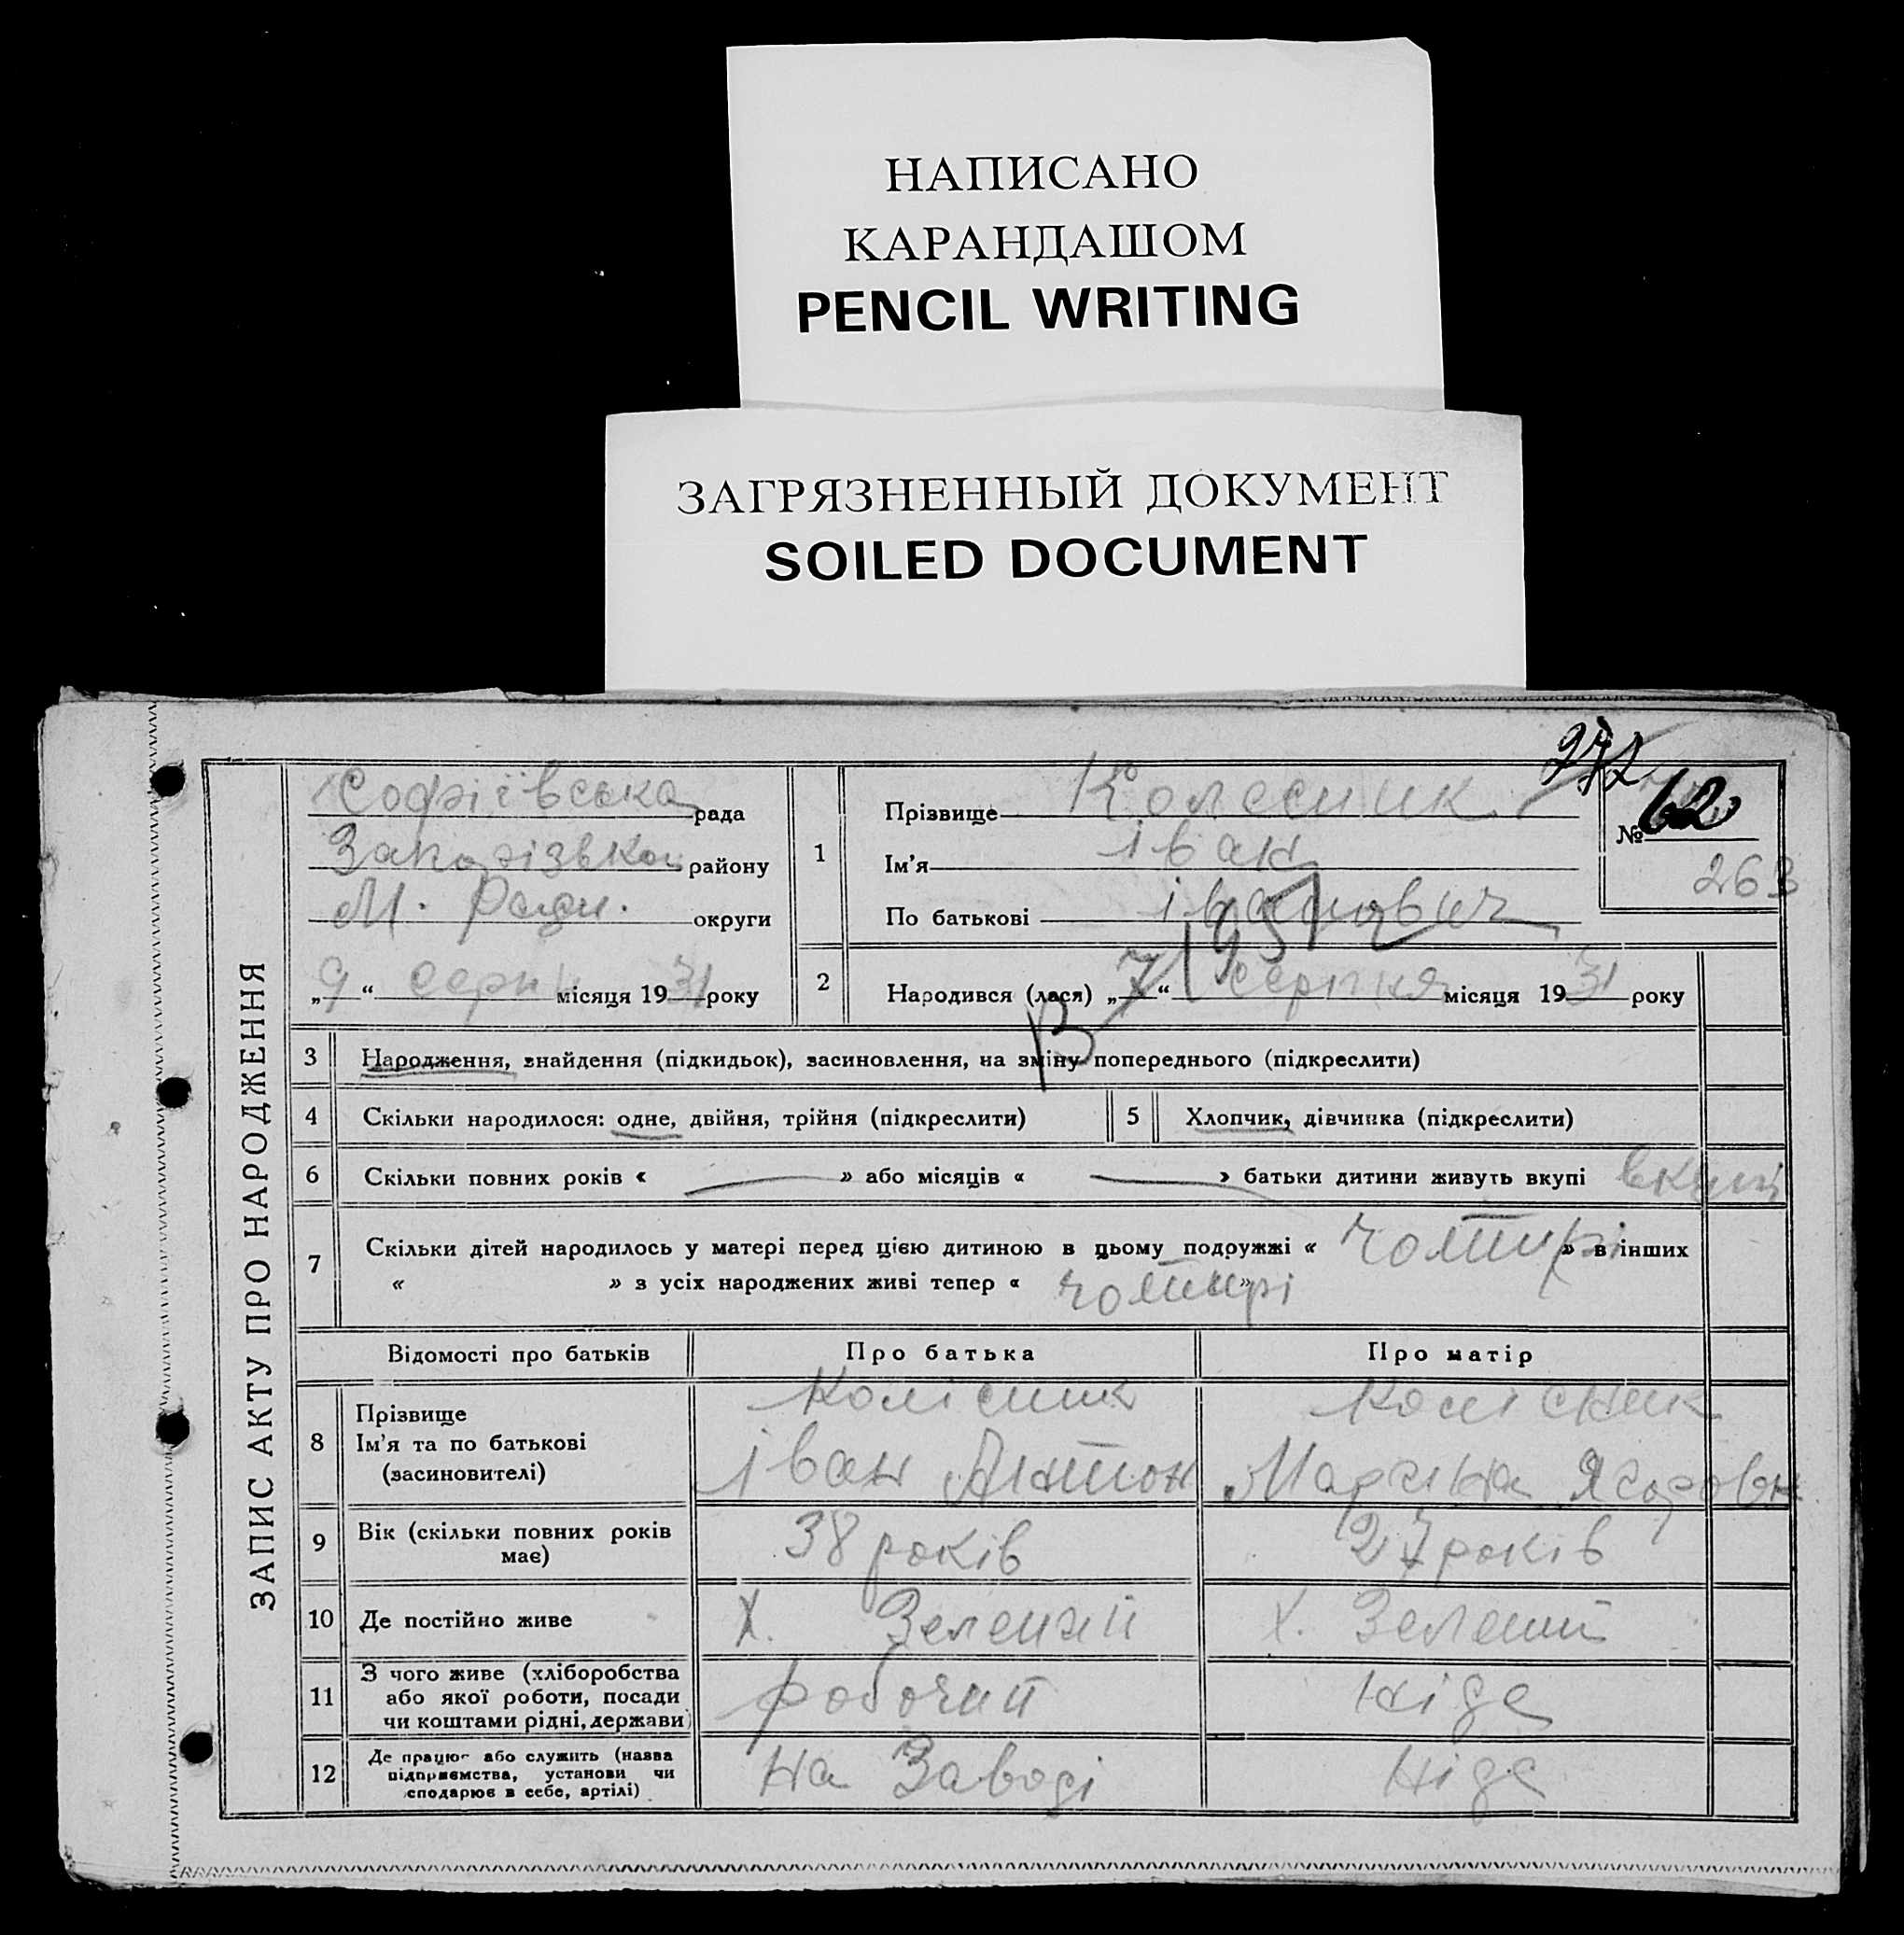 НАПИСАНО
КАРАНДАШОМ
PENCIL WRITING
ЗАГРЯЗНЕННЫЙ ДОКУМЕНТ
SOILED DOCUMENT
ЗАПИС АКТУ ПРО НАРОДЖЕННЯ
272
Софіївська рада
Запорізької району
М. Ради. округи
„9“ Серпн місяця 1931 року
1
Прізвище Колесник
Ім'я Іван
По батькові Іванович
№ 62
263
2
Народився (лася) „7“ Серпня місяця 1931 року
3 Народження, знайдення (підкидьок), засиновлення, на зміну попереднього (підкреслити)
4 Скільки народилося: одне, двійня, трійня (підкреслити) 5 Хлопчик, дівчинка (підкреслити)
6 Скільки повних років « — » або місяців « — » батьки дитини живуть вкупі вкупі
7 Скільки дітей народилось у матері перед цією дитиною в цьому подружжі « чотирі » в інших
« » з усіх народжених живі тепер « чотирі »
Відомості про батьків Про батька Про матір
8 Прізвище Колісник Колісник
Ім'я та по батькові
(засиновителі) Іван Антон
9 Вік (скільки повних років має) 38 років 27 років
10 Де постійно живе Х. Зелений Х. Зелений
11 З чого живе (хліборобства або якої роботи, посади чи коштами рідні, держави) робочий ніде
12 Де працює або служить (назва підприємства, установи чи сподарює в себе, артілі) на Заводі ніде